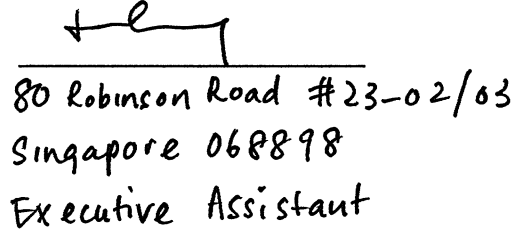 80 Robinson Road #23-02/03
Singapore 068898
Executive Assistant